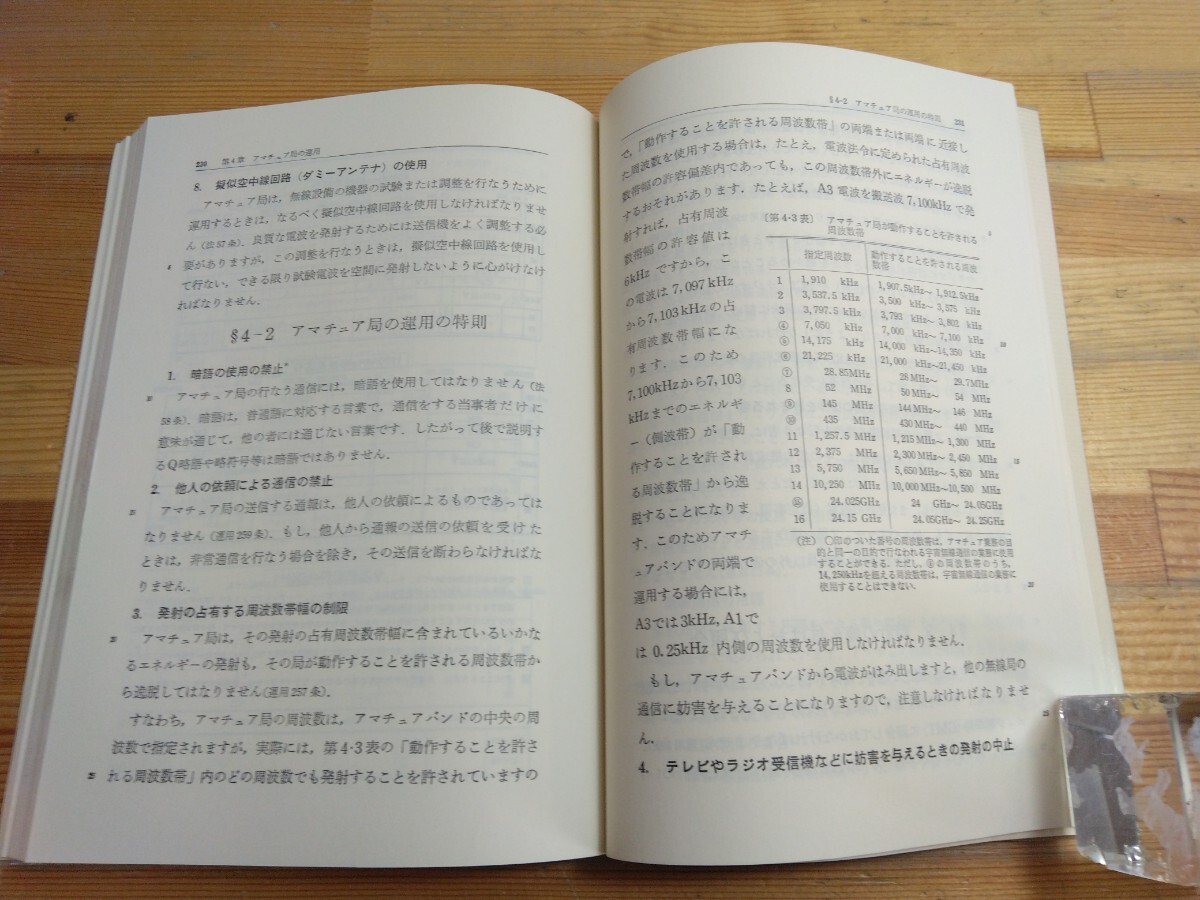 230 第4章 アマチュア局の運用
8. 擬似空中線回路(ダミーアンテナ)の使用
アマチュア局は,無線設備の機器の試験または調整を行なうために
運用するときは,なるべく擬似空中線回路を使用しなければなりませ
ん(法57条).良質な電波を発射するためには送信機をよく調整する必
要がありますが,この調整を行なうときは,擬似空中線回路を使用し
て行ない,できる限り試験電波を空間に発射しないように心がけなけ
ればなりません.
§4-2 アマチュア局の運用の特則
1. 暗語の使用の禁止
アマチュア局の行なう通信には,暗語を使用してはなりません(法
58条).暗語は,普通語に対応する言葉で,通信をする当事者だけに
意味が通じて,他の者には通じない言葉です.したがって後で説明す
るQ略語や略符号等は暗語ではありません.
2. 他人の依頼による通信の禁止
アマチュア局の送信する通報は,他人の依頼によるものであっては
なりません(運用259条).もし,他人から通報の送信の依頼を受けた
ときは,非常通信を行なう場合を除き,その送信を断わらなければな
りません.
3. 発射の占有する周波数帯幅の制限
アマチュア局は,その発射の占有周波数帯幅に含まれているいかな
るエネルギーの発射も,その局が動作することを許される周波数帯か
ら逸脱してはなりません(運用257条).
すなわち,アマチュア局の周波数は,アマチュアバンドの中央の周
波数で指定されますが,実際には,第4·3表の「動作することを許さ
れる周波数帯」内のどの周波数でも発射することを許されていますの
§4-2 アマチュア局の運用の特則
で,「動作することを許される周波数帯」の両端または両端に近接し
た周波数を使用する場合は,たとえ,電波法令に定められた占有周波
数帯幅の許容偏差内であっても,この周波数帯外にエネルギーが逸脱
するおそれがあります.たとえば,A3電波を搬送波7,100kHzで発
射すれば,占有周波
数帯幅の許容値は
6kHzですから,こ
の電波は7,097kHz
から7,103kHzの占
有周波数帯幅にな
ります.このため
7,100kHzから7,103
kHzまでのエネルギ
ー(側波帯)が「動
作することを許され
る周波数帯」から逸
脱することになりま
す.このためアマチ
ュアバンドの両端で
運用する場合には,
A3では3kHz, A1で
は0.25kHz 内側の周波数を使用しなければなりません.
〔第4·3表〕 アマチュア局が動作することを許される
周波数帯
指定周波数 動作することを許される周波
数帯
1 1,910 kHz 1,907.5kHz～1,912.5kHz
2 3,537.5 kHz 3,500 kHz～ 3,575 kHz
3 3,797.5 kHz 3,793 kHz～ 3,802 kHz
④ 7,050 kHz 7,000 kHz～ 7,100 kHz
⑤ 14,175 kHz 14,000 kHz～14,350 kHz
⑥ 21,225 kHz 21,000 kHz～21,450 kHz
⑦ 28.85MHz 28 MHz～ 29.7MHz
8 52 MHz 50 MHz～ 54 MHz
⑨ 145 MHz 144 MHz～ 146 MHz
⑩ 435 MHz 430 MHz～ 440 MHz
11 1,257.5 MHz 1,215 MHz～ 1,300 MHz
12 2,375 MHz 2,300 MHz～ 2,450 MHz
13 5,750 MHz 5,650 MHz～ 5,850 MHz
14 10,250 MHz 10,000 MHz～10,500 MHz
⑮ 24.025GHz 24 GHz～ 24.05GHz
16 24.15 GHz 24.05GHz～ 24.25GHz
(注) ○印のついた番号の周波数帯は,アマチュア業務の目
的と同一の目的で行なわれる宇宙無線通信の業務に使用
することができる.ただし,⑤の周波数帯のうち,
14,250kHzを超える周波数帯は,宇宙無線通信の業務に
使用することはできない.
もし,アマチュアバンドから電波がはみ出しますと,他の無線局の
通信に妨害を与えることになりますので,注意しなければなりませ
ん.
4. テレビやラジオ受信機などに妨害を与えるときの発射の中止